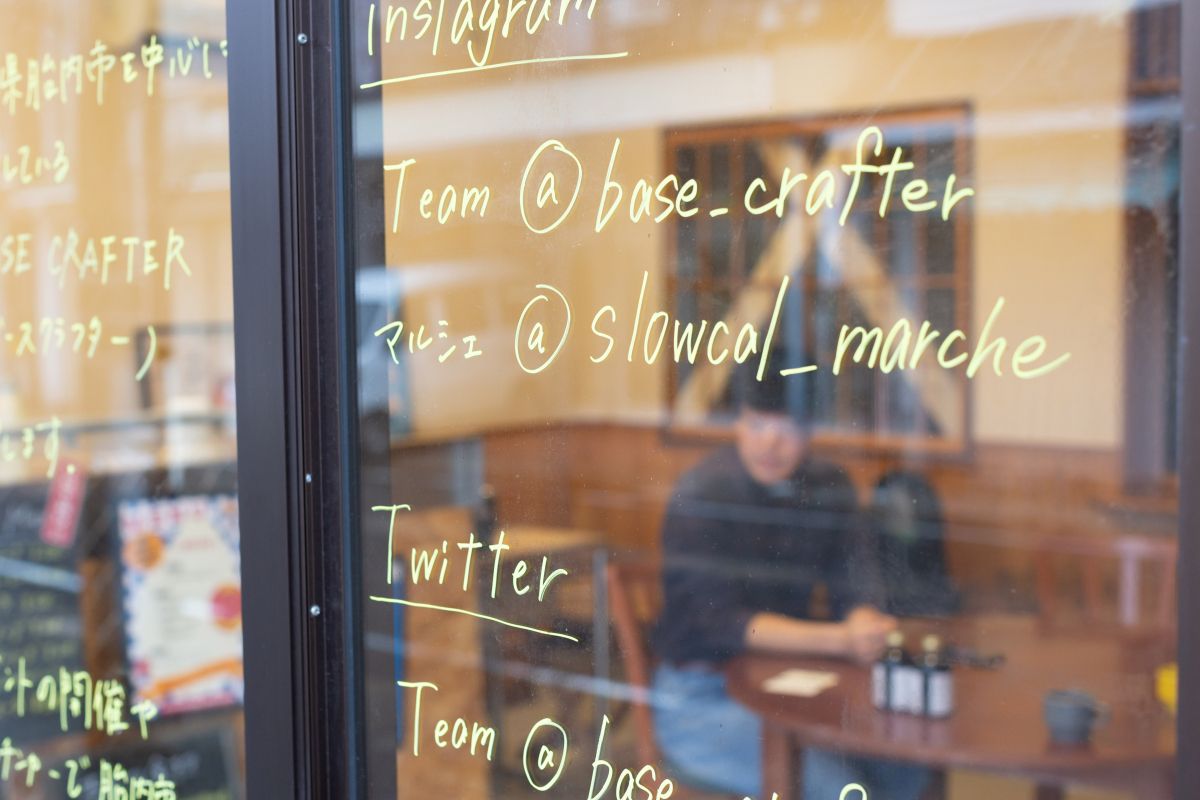 県胎内市を中心に
している
SE CRAFTER
ースクラフター)
します。
トの開催や
ナーで胎内市
Instagram
Team @base_crafter
マルシェ @slowcal_marche
Twitter
Team @base